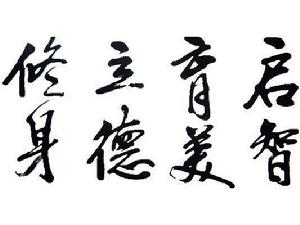 启智
育美
立德
修身